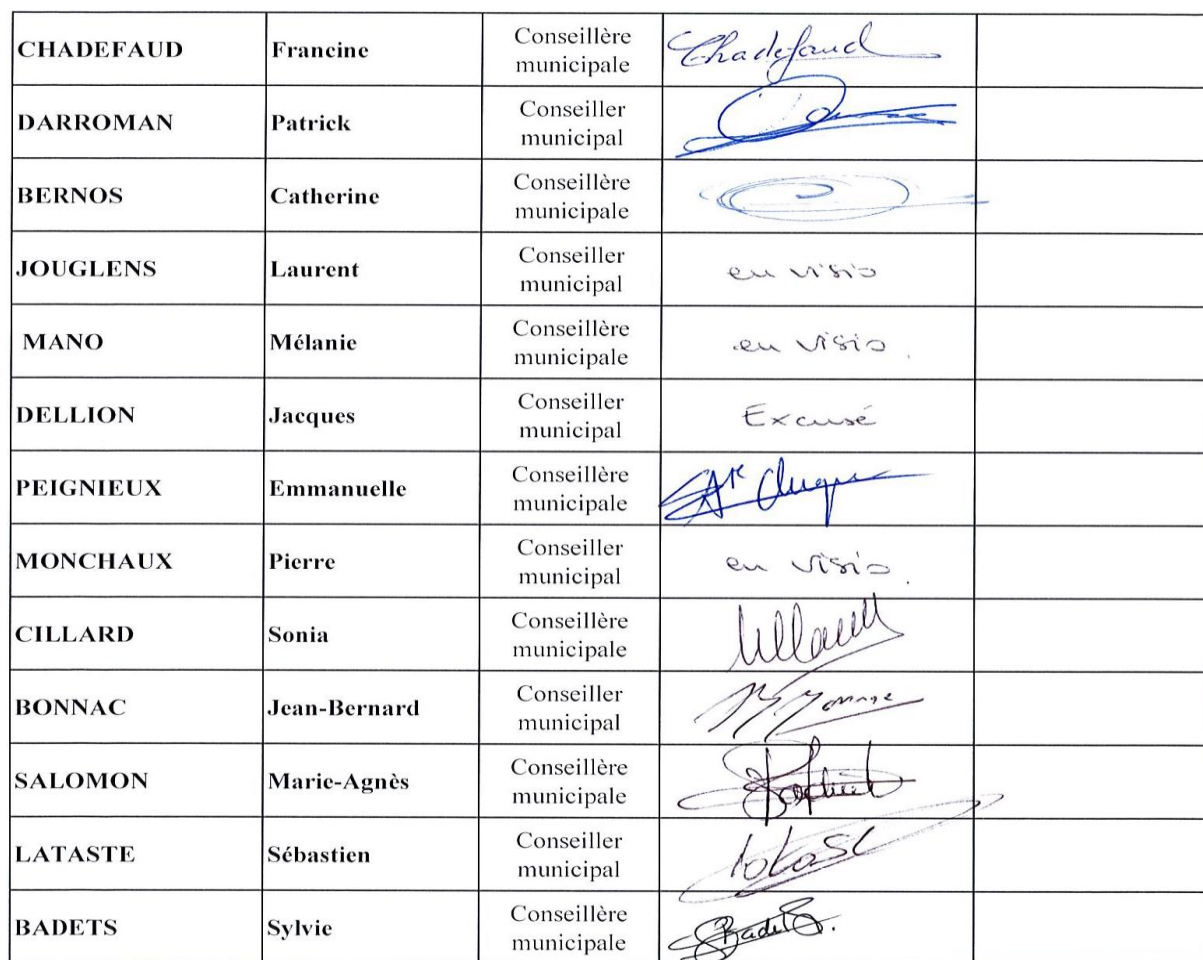 CHADEFAUD Francine Conseillère municipale Chadefaud
DARROMAN Patrick Conseiller municipal
BERNOS Catherine Conseillère municipale
JOUGLENS Laurent Conseiller municipal en visio
MANO Mélanie Conseillère municipale en visio.
DELLION Jacques Conseiller municipal Excusé
PEIGNIEUX Emmanuelle Conseillère municipale
MONCHAUX Pierre Conseiller municipal en visio.
CILLARD Sonia Conseillère municipale
BONNAC Jean-Bernard Conseiller municipal
SALOMON Marie-Agnès Conseillère municipale
LATASTE Sébastien Conseiller municipal
BADETS Sylvie Conseillère municipale